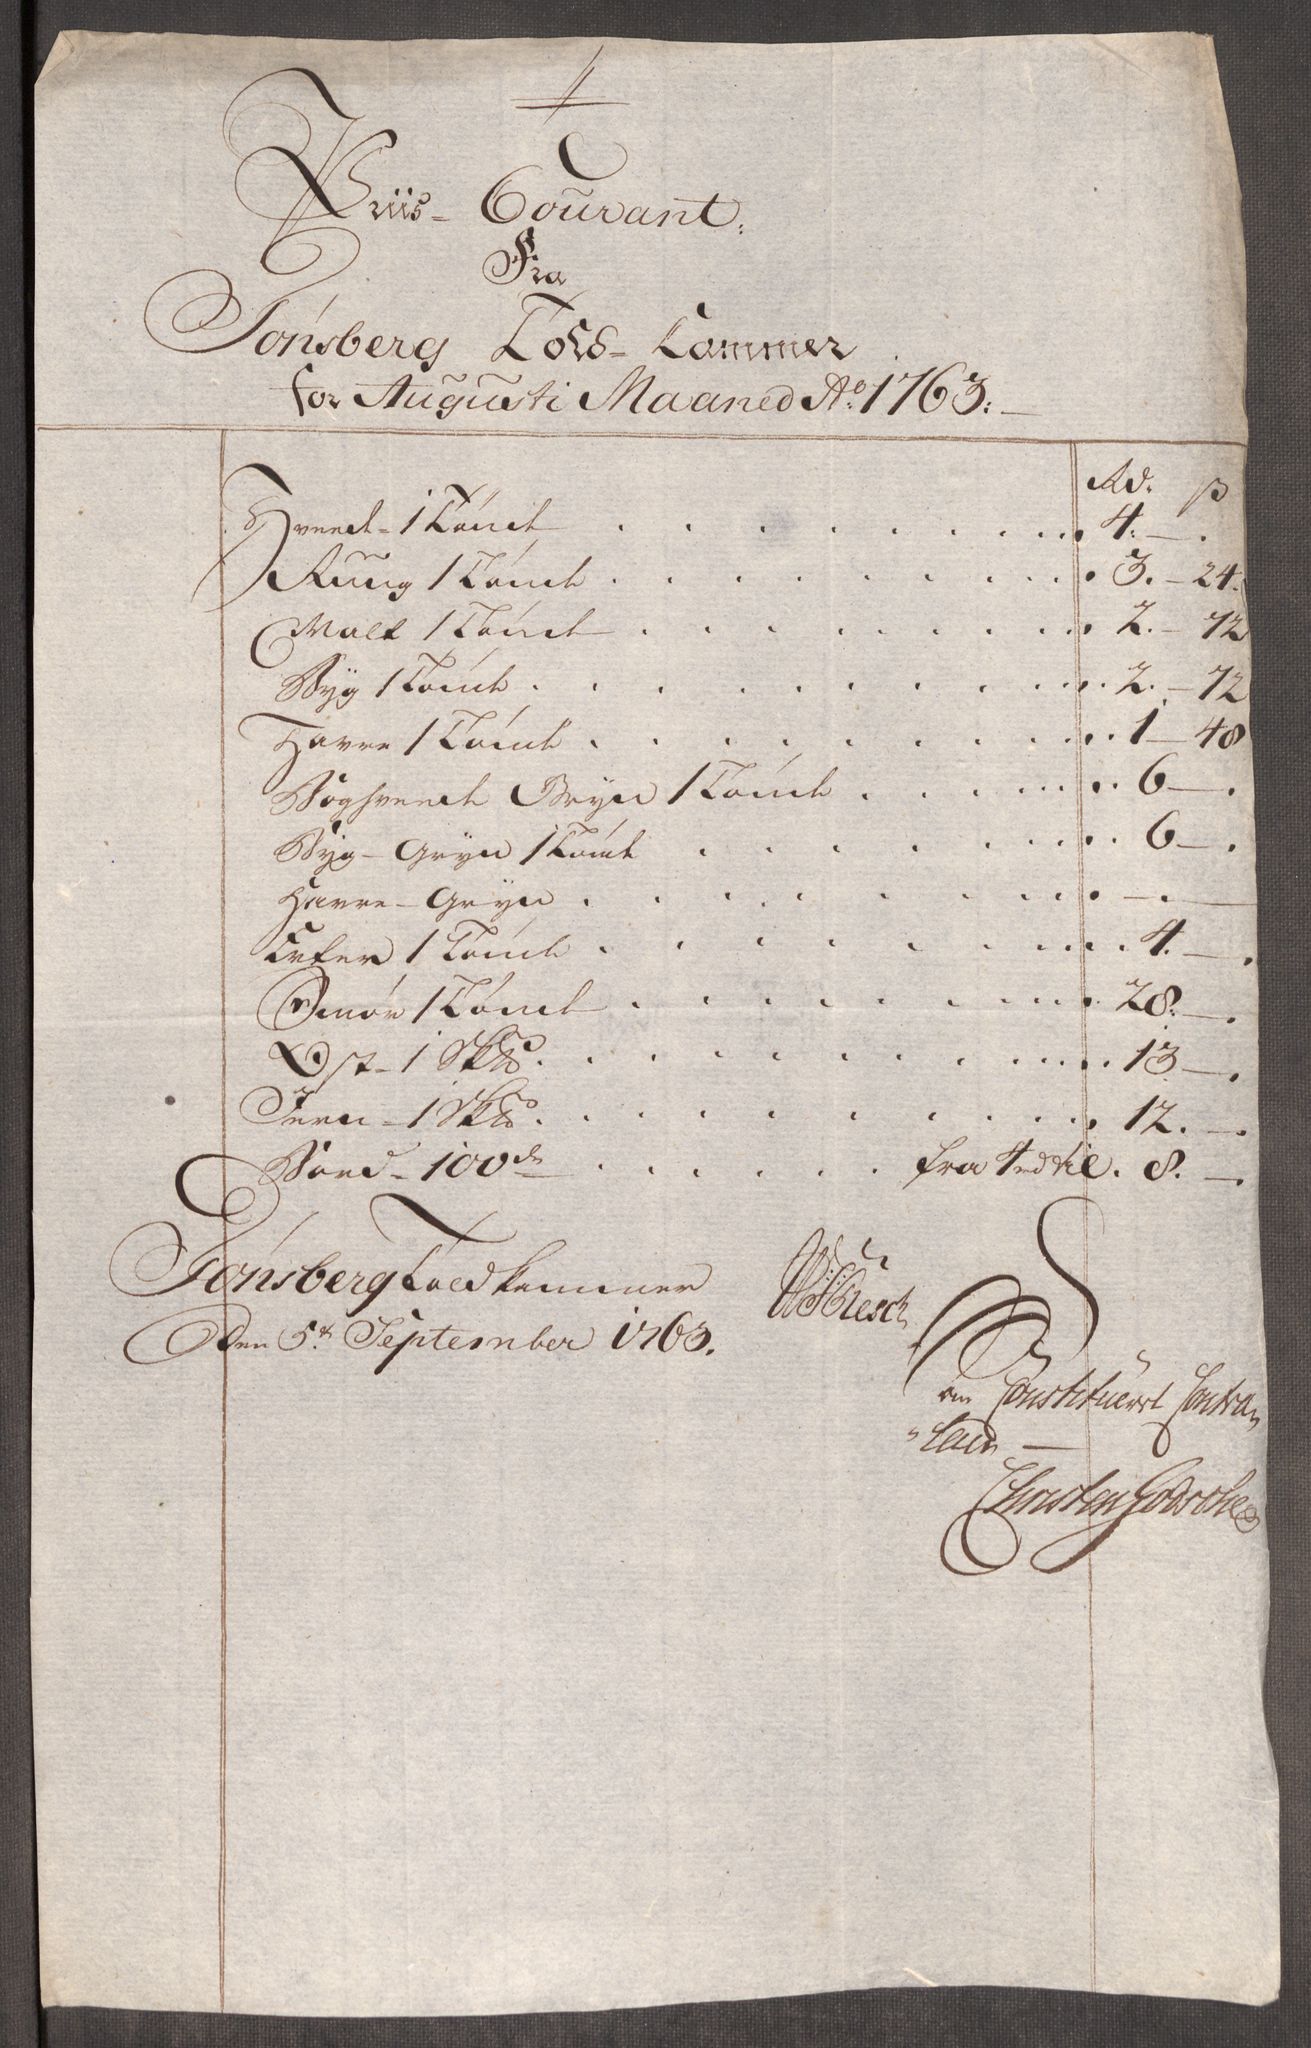 Priis- Courant.
Fra
Tönsberg Told- Kammer
for Augusti Maaned Ao. 1763:
Rd. ß
Hveede- 1 Tönde . . . 4. — .
Rüug 1 Tönde . . . 3. — 24.
Malt 1 Tönde . . . 2. — 72
Byg 1 Tönde . . . 2. — 72
Havre 1 Tönde . . . 1 — 48
Boghveede Gryn 1 Tönde . . . 6 — .
Byg- Gryn 1 Tönde . . . 6 — .
Havre- Gryn . . . — . —
Erter 1 Tönde . . . 4. — .
Smör 1 Tönde . . . 28. — .
Ost- 1 Sk℔ . . . 13 — .
Jern- 1 Sk℔ . . . 12. — .
Bord- 100de . . . fra 4rd til . 8. — .
Tönsberg Toldkammer
Den 5te September 1763.
constitueret Contra
leur
Christen